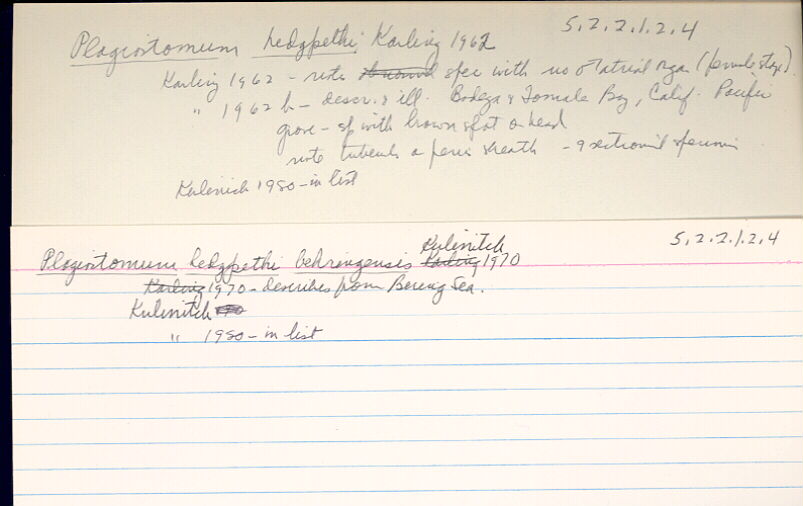 Plagiostomum hedgpethi Karling 1962 5.2.2.1.2.4
Karling 1962 - note spec with no ♂ atrial organ (female stage).
" 1962 b - descr. & ill. Bodega & Tomales Bay, Calif. Pacific
grove - sp with brown spot on head
note tubercle on penis sheath - 9 sectioned specimens
Kulinich 1980 - in list
5.2.2.1.2.4
Kulinitch
Plagiostomum hedgpethi behringensis Karling 1970
Karling 1970 - describes from Bering Sea.
Kulinitch
" 1980 - in list